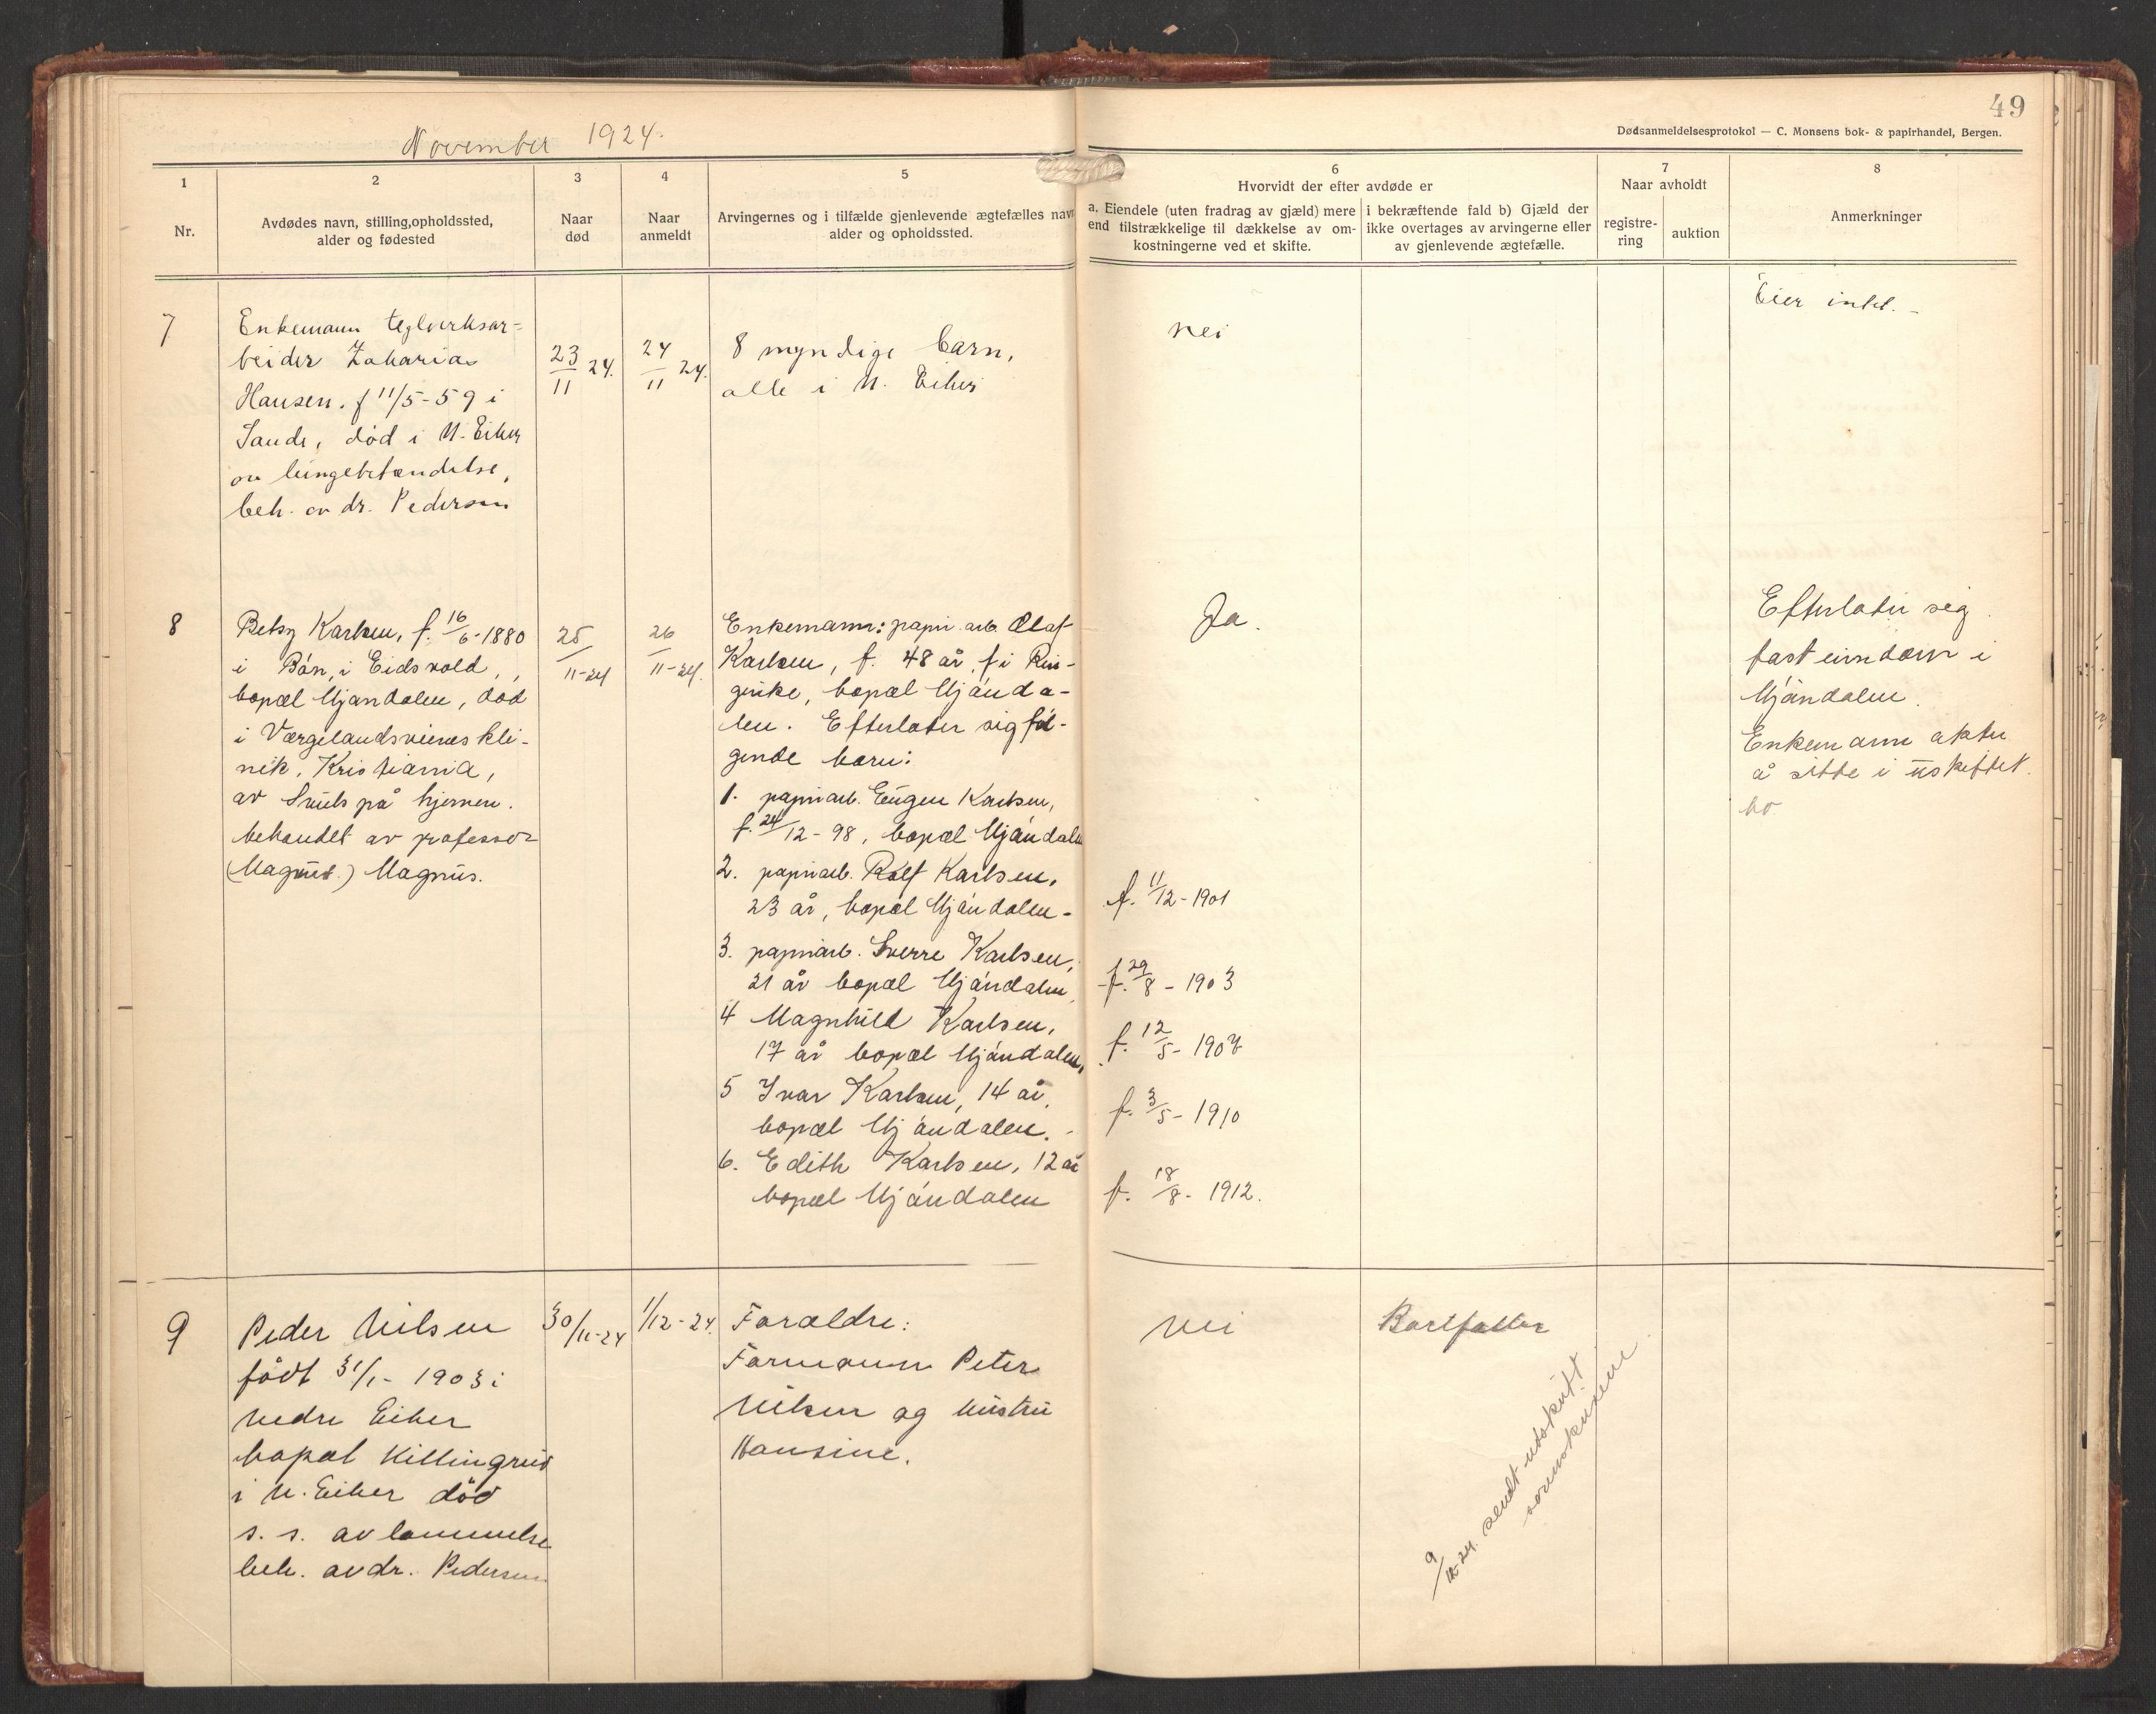 49
Dødsanmeldelsesprotokol — C. Monsens bok- & papirhandel, Bergen.
November 1924.
1
Nr.
2
Avdødes navn, stilling, opholdssted,
alder og fødested
3
Naar
død
4
Naar
anmeldt
5
Arvingernes og i tilfælde gjenlevende ægtefælles navn
alder og opholdssted.
6
Hvorvidt der efter avdøde er
a. Eiendele (uten fradrag av gjæld) mere
end tilstrækkelige til dækkelse av om-
kostningerne ved et skifte.
i bekræftende fald b) Gjæld der
ikke overtages av arvingerne eller
av gjenlevende ægtefælle.
7
Naar avholdt
registre-
ring
auktion
8
Anmerkninger
7
Enkemann teglverksar-
beider Zakarias
Hansen. f 11/5-59 i
Sande, død i N. Eiker
av lungebetændelse,
beh. av dr. Pedersen
23/11 24.
24/11 24.
8 myndige barn,
alle i N. Eiker
nei
Eier intet. -
8
Betsy Karlsen, f. 16/6-1880
i Bøn, i Eidsvold,
bopæl Mjøndalen, død
i Værgelandsveiens kli-
nik, Kristiania,
av Svulst på hjernen.
behandlet av professor
(Magnus.) Magnus.
25/11-24
26/11-24.
Enkemann: papir. arb. Olaf
Karlsen, f. 48 år, f i Rin-
gerike, bopæl Mjønda-
len. Efterlater sig føl-
gende barn:
1. papirarb. Eugen Karlsen,
f. 24/12-98, bopæl Mjøndalen
2. papirarb. Rolf Karlsen,
23 år, bopæl Mjøndalen - f. 11/12-1901
3. papirarb. Sverre Karlsen,
21 år bopæl Mjøndalen, f. 29/8-1903
4 Magnhild Karlsen,
17 år bopæl Mjøndalen, f. 12/5-1907
5 Ivar Karlsen, 14 år,
bopæl Mjøndalen. - f. 3/5-1910
6. Edith Karlsen, 12 år
bopæl Mjøndalen f. 18/8-1912.
Ja.
Efterlater sig
fast eiendom i
Mjøndalen.
Enkemann akter
å sitte i uskiftet
bo
9
Peder Nilsen
født 31/1-1903 i
Nedre Eiker
bopæl Killingrud
i N. Eiker død
s. s. av lammelse
beh. av dr. Pedersen
30/11-24
1/12-24.
Forældre:
Formann Peter
Nilsen og hustru
Hansine.
Nei
Bortfaller
9/12-24. sendt utskrift